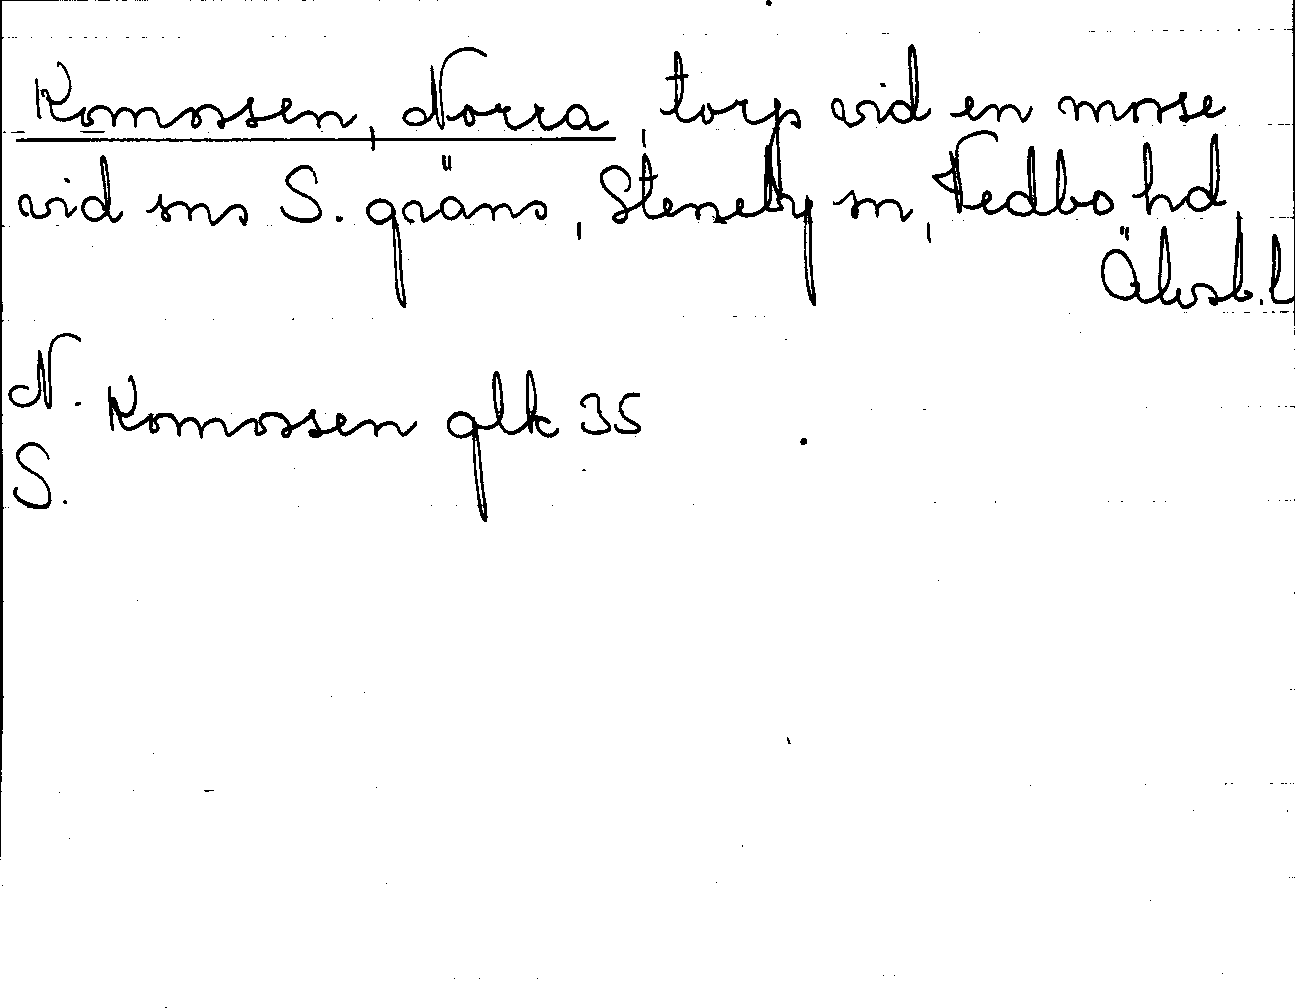 Komossen, Norra, torp vid en mosse
vid sns S. gräns, Steneby sn, Vedbo hd,
Älvsb. l
N.
Komossen glk 35
S.